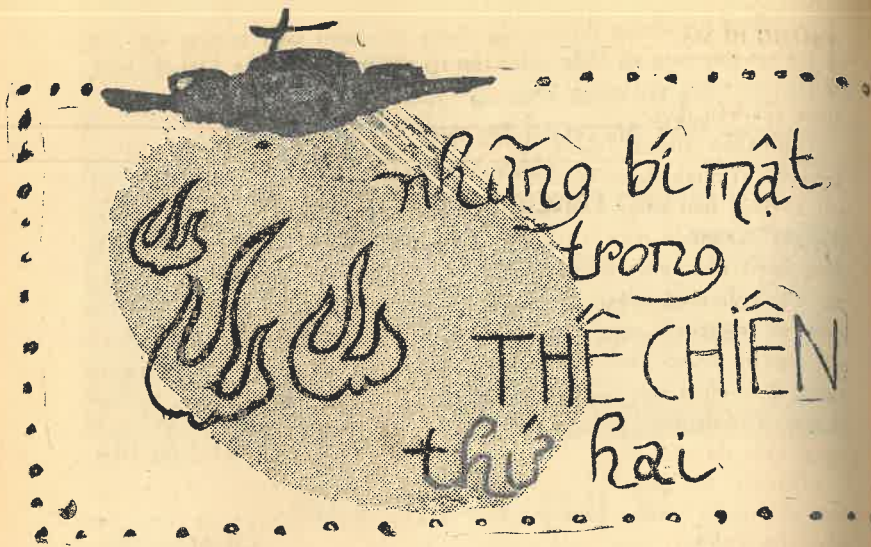 những bí mật
trong
THẾ CHIẾN
thứ hai